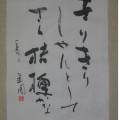 きりきり
しやんとして
さく桔梗かな